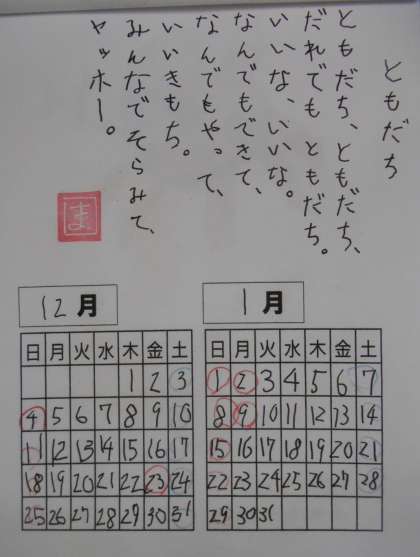 ともだち
ともだち、ともだち、
だれでも ともだち。
いいな、いいな。
なんでもできて、
なんでもやって、
いいきもち。
みんなでそらみて、
ヤッホー。
ま
12月
日 月 火 水 木 金 土
1 2 3
4 5 6 7 8 9 10
11 12 13 14 15 16 17
18 19 20 21 22 23 24
25 26 27 28 29 30 31
1月
日 月 火 水 木 金 土
1 2 3 4 5 6 7
8 9 10 11 12 13 14
15 16 17 18 19 20 21
22 23 24 25 26 27 28
29 30 31